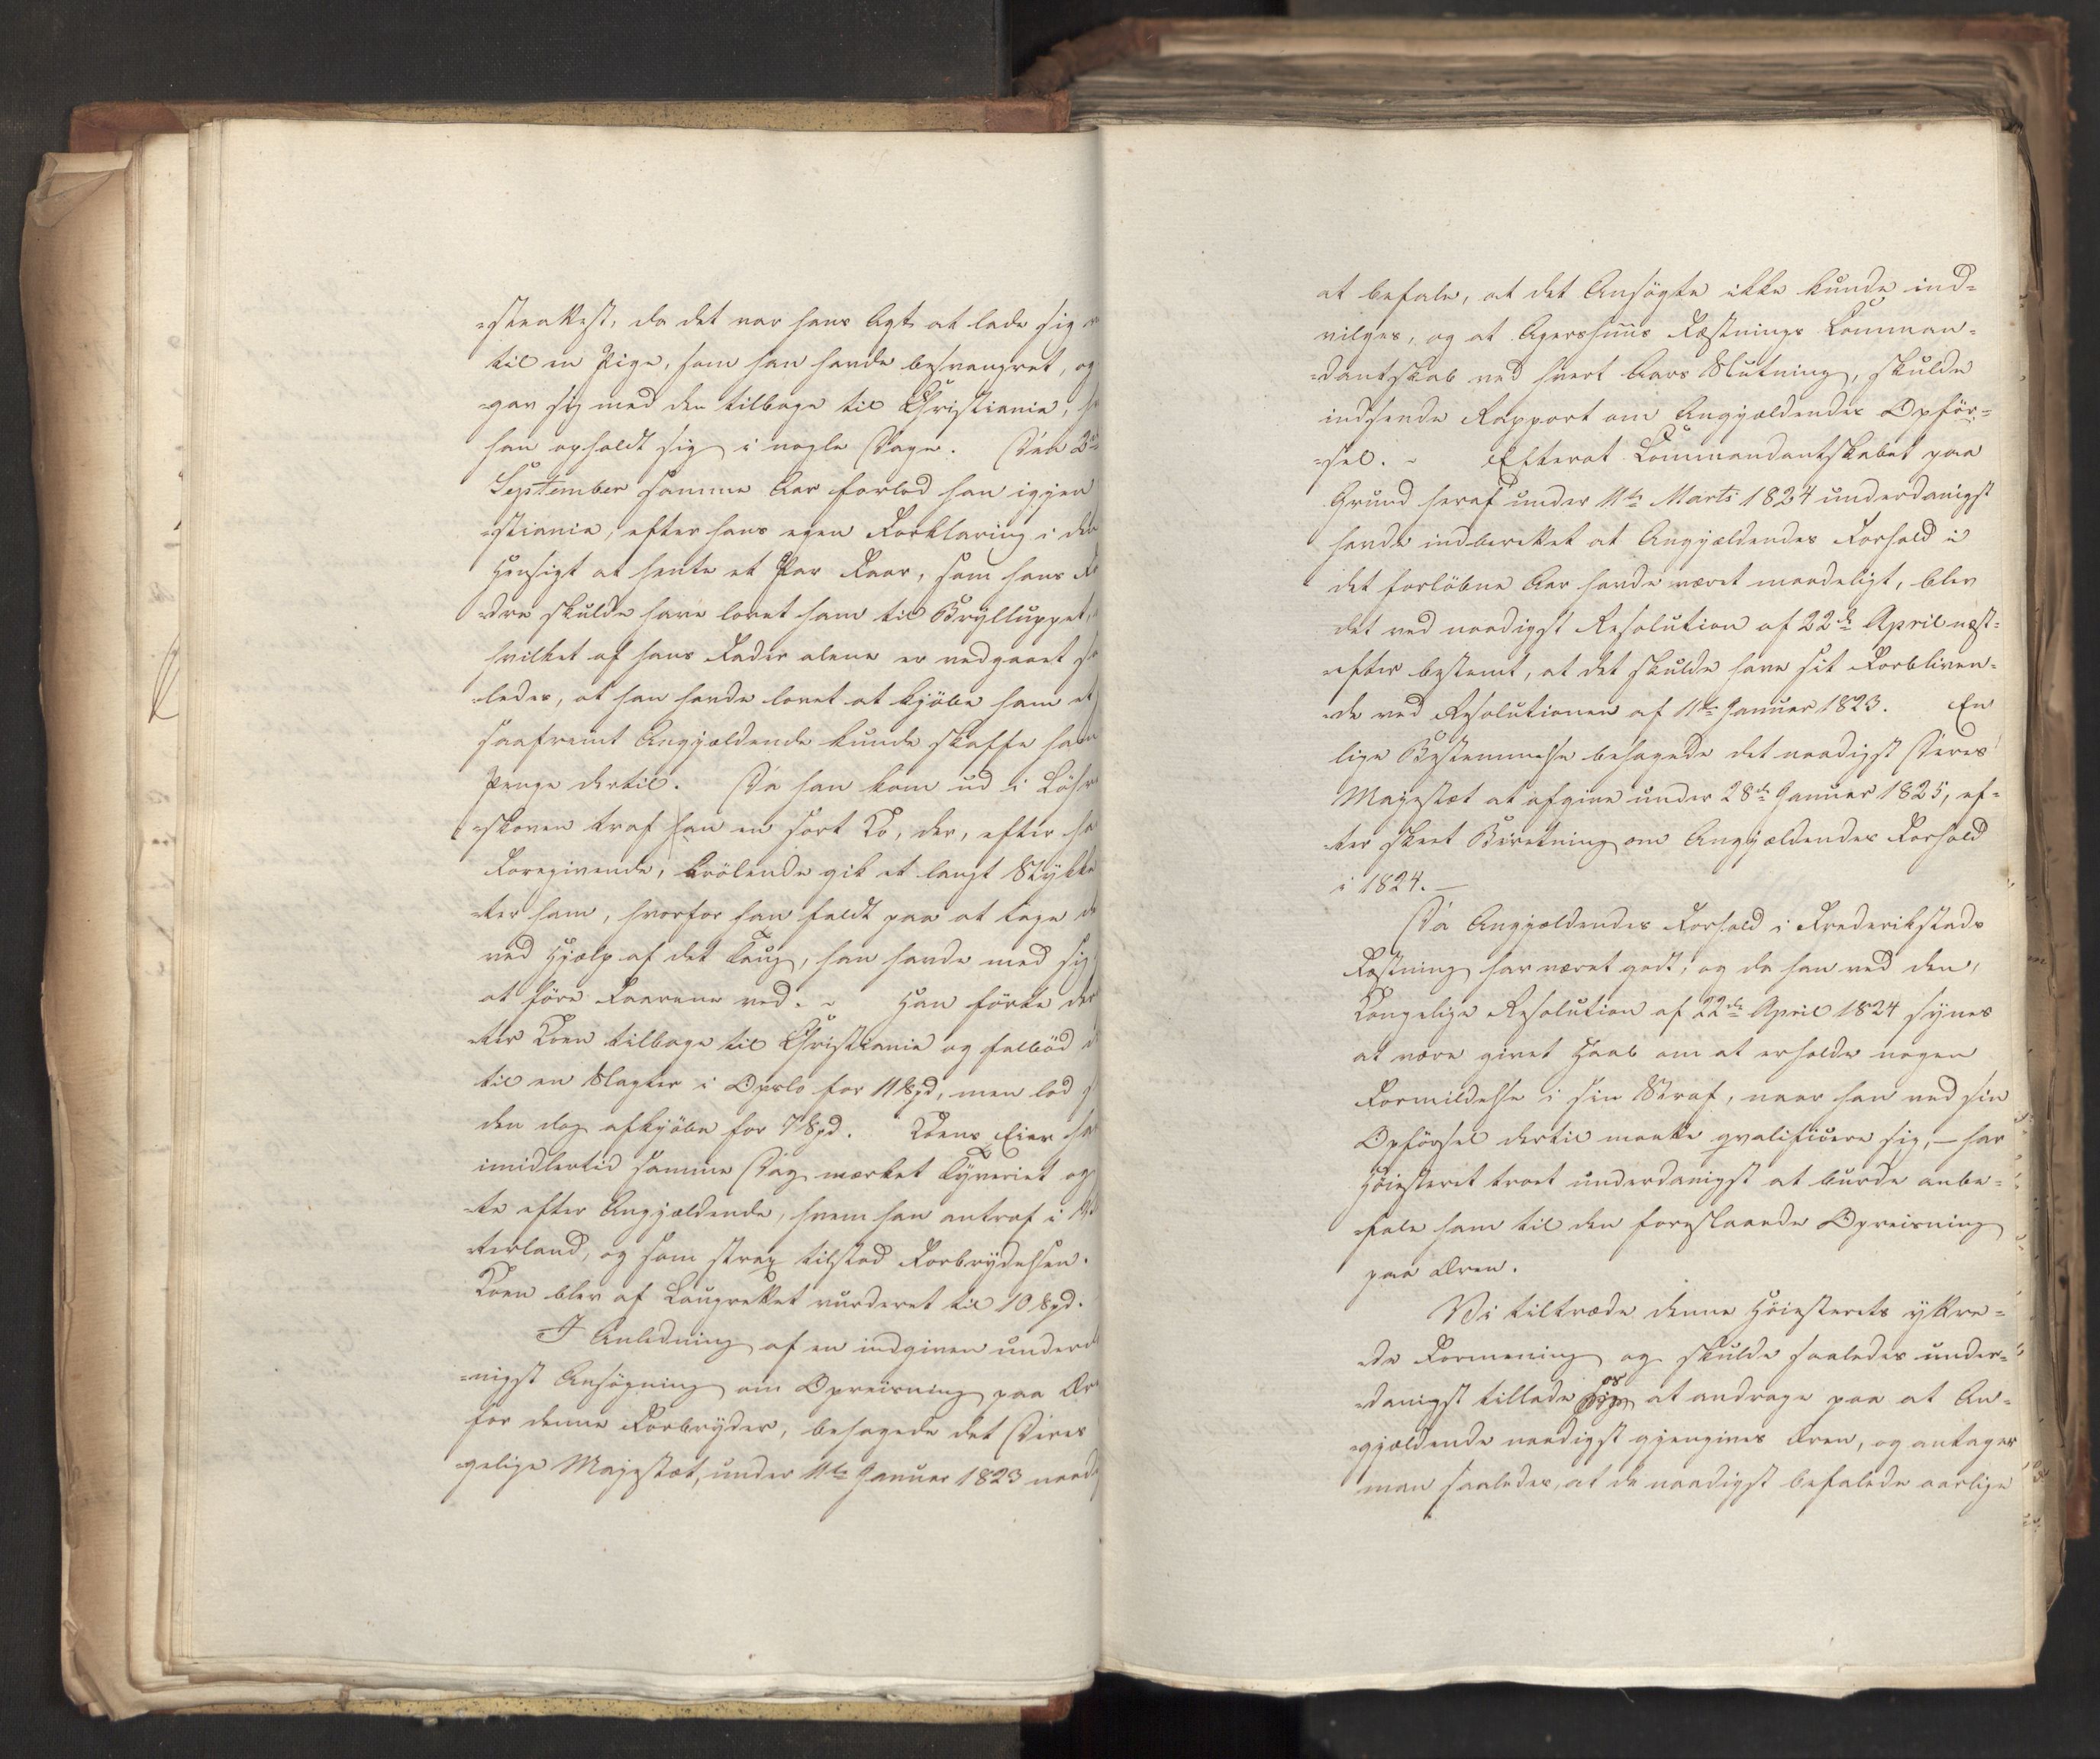 =steattest, da det var hans Agt at lade sig
til en Pige, som han havde besvangret, og
=gav sig med den tilbage til Christiania,
han opholdt sig i nogle Dage. Den 2den
September samme Aar forlod han igjen
=stiania, efter hans egen Forklaring i den
Hensigt at hente et Par Faar, som hans
=dre skulde have lovet ham til Brylluppet,
hvilket af hans Fader alene er vedgaaet
=ledes, at han havde lovet at kjöbe ham et
saafremt Angjældende kunde skaffe ham
Penge dertil. Da han kom ud i
=skoven traf han en sort Ko, der, efter
Foregivende, brölende gik et langt Stykke
=ter ham, hvorfor han faldt paa at tage
ved Hjælp af det Toug, han havde med sig
at före Faarene ved. - Han förte der
=ter Koen tilbage til Christiania og falböd
til en Slagter i Opslo for 11 Spd, men lod
den dog afkjöbe for 7 Spd. Koens Eier
imidlertid samme Dag mærket Tyveriet og
=te efter Angjældende, hvem han antraf i
=terland, og som strax tilstod Forbrydelsen.
Koen blev af Laugrettet vurderet til 10 Spd.
I Anledning af en indgiven underd
=nigst Ansögning om Opreisning paa Ære
for denne Forbryder, behagede det Deres
=gelige Majestæt, under 11te Januar 1823 naad
at befale, at det Ansögte ikke kunde ind=
vilges, og at Agershuus Fæstnings Comman=
=dantskab ved hvert Aars Slutning, skulde
indsende Rapport om Angjældendes Opför=
=sel. - Efterat Commandantskabet paa
Grund heraf under 11te Marts 1824 underdanigst
havde indberettet at Angjældendes Forhold i
det forløbne Aar havde været maadeligt, blev
det ved naadigst Resolution af 22de April næst=
=efter bestemt, at det skulde have sit Forbliven=
=de ved Resolutionen af 11te Januar 1823. En
lige Bestemmelse behagede det naadigst Deres
Majestæt at afgive under 28de Januar 1825, ef=
=ter skeet Beretning om Angjældendes Forhold
i 1824. —
Da Angjældendes Forhold i Frederikstads
Fæstning har været godt, og da han ved den,
Kongelige Resolution af 22de April 1824 synes
at være givet Haab om at erholde nogen
Formildelse i sin Straf, naar han ved sin
Opførsel dertil maatte qvalificere sig, — har
Höiesteret troet underdanigst at burde anbe=
=fale ham til den foreslaaede Opreisning
paa Æren.
Vi tiltræde denne Höiesterets yttre=
=de Formening og skulde saaledes under=
=danigst tillade os at andrage paa at An=
=gjældende naadigst gjengives Æren, og antager
man saaledes, at de naadigst befalede aarlige